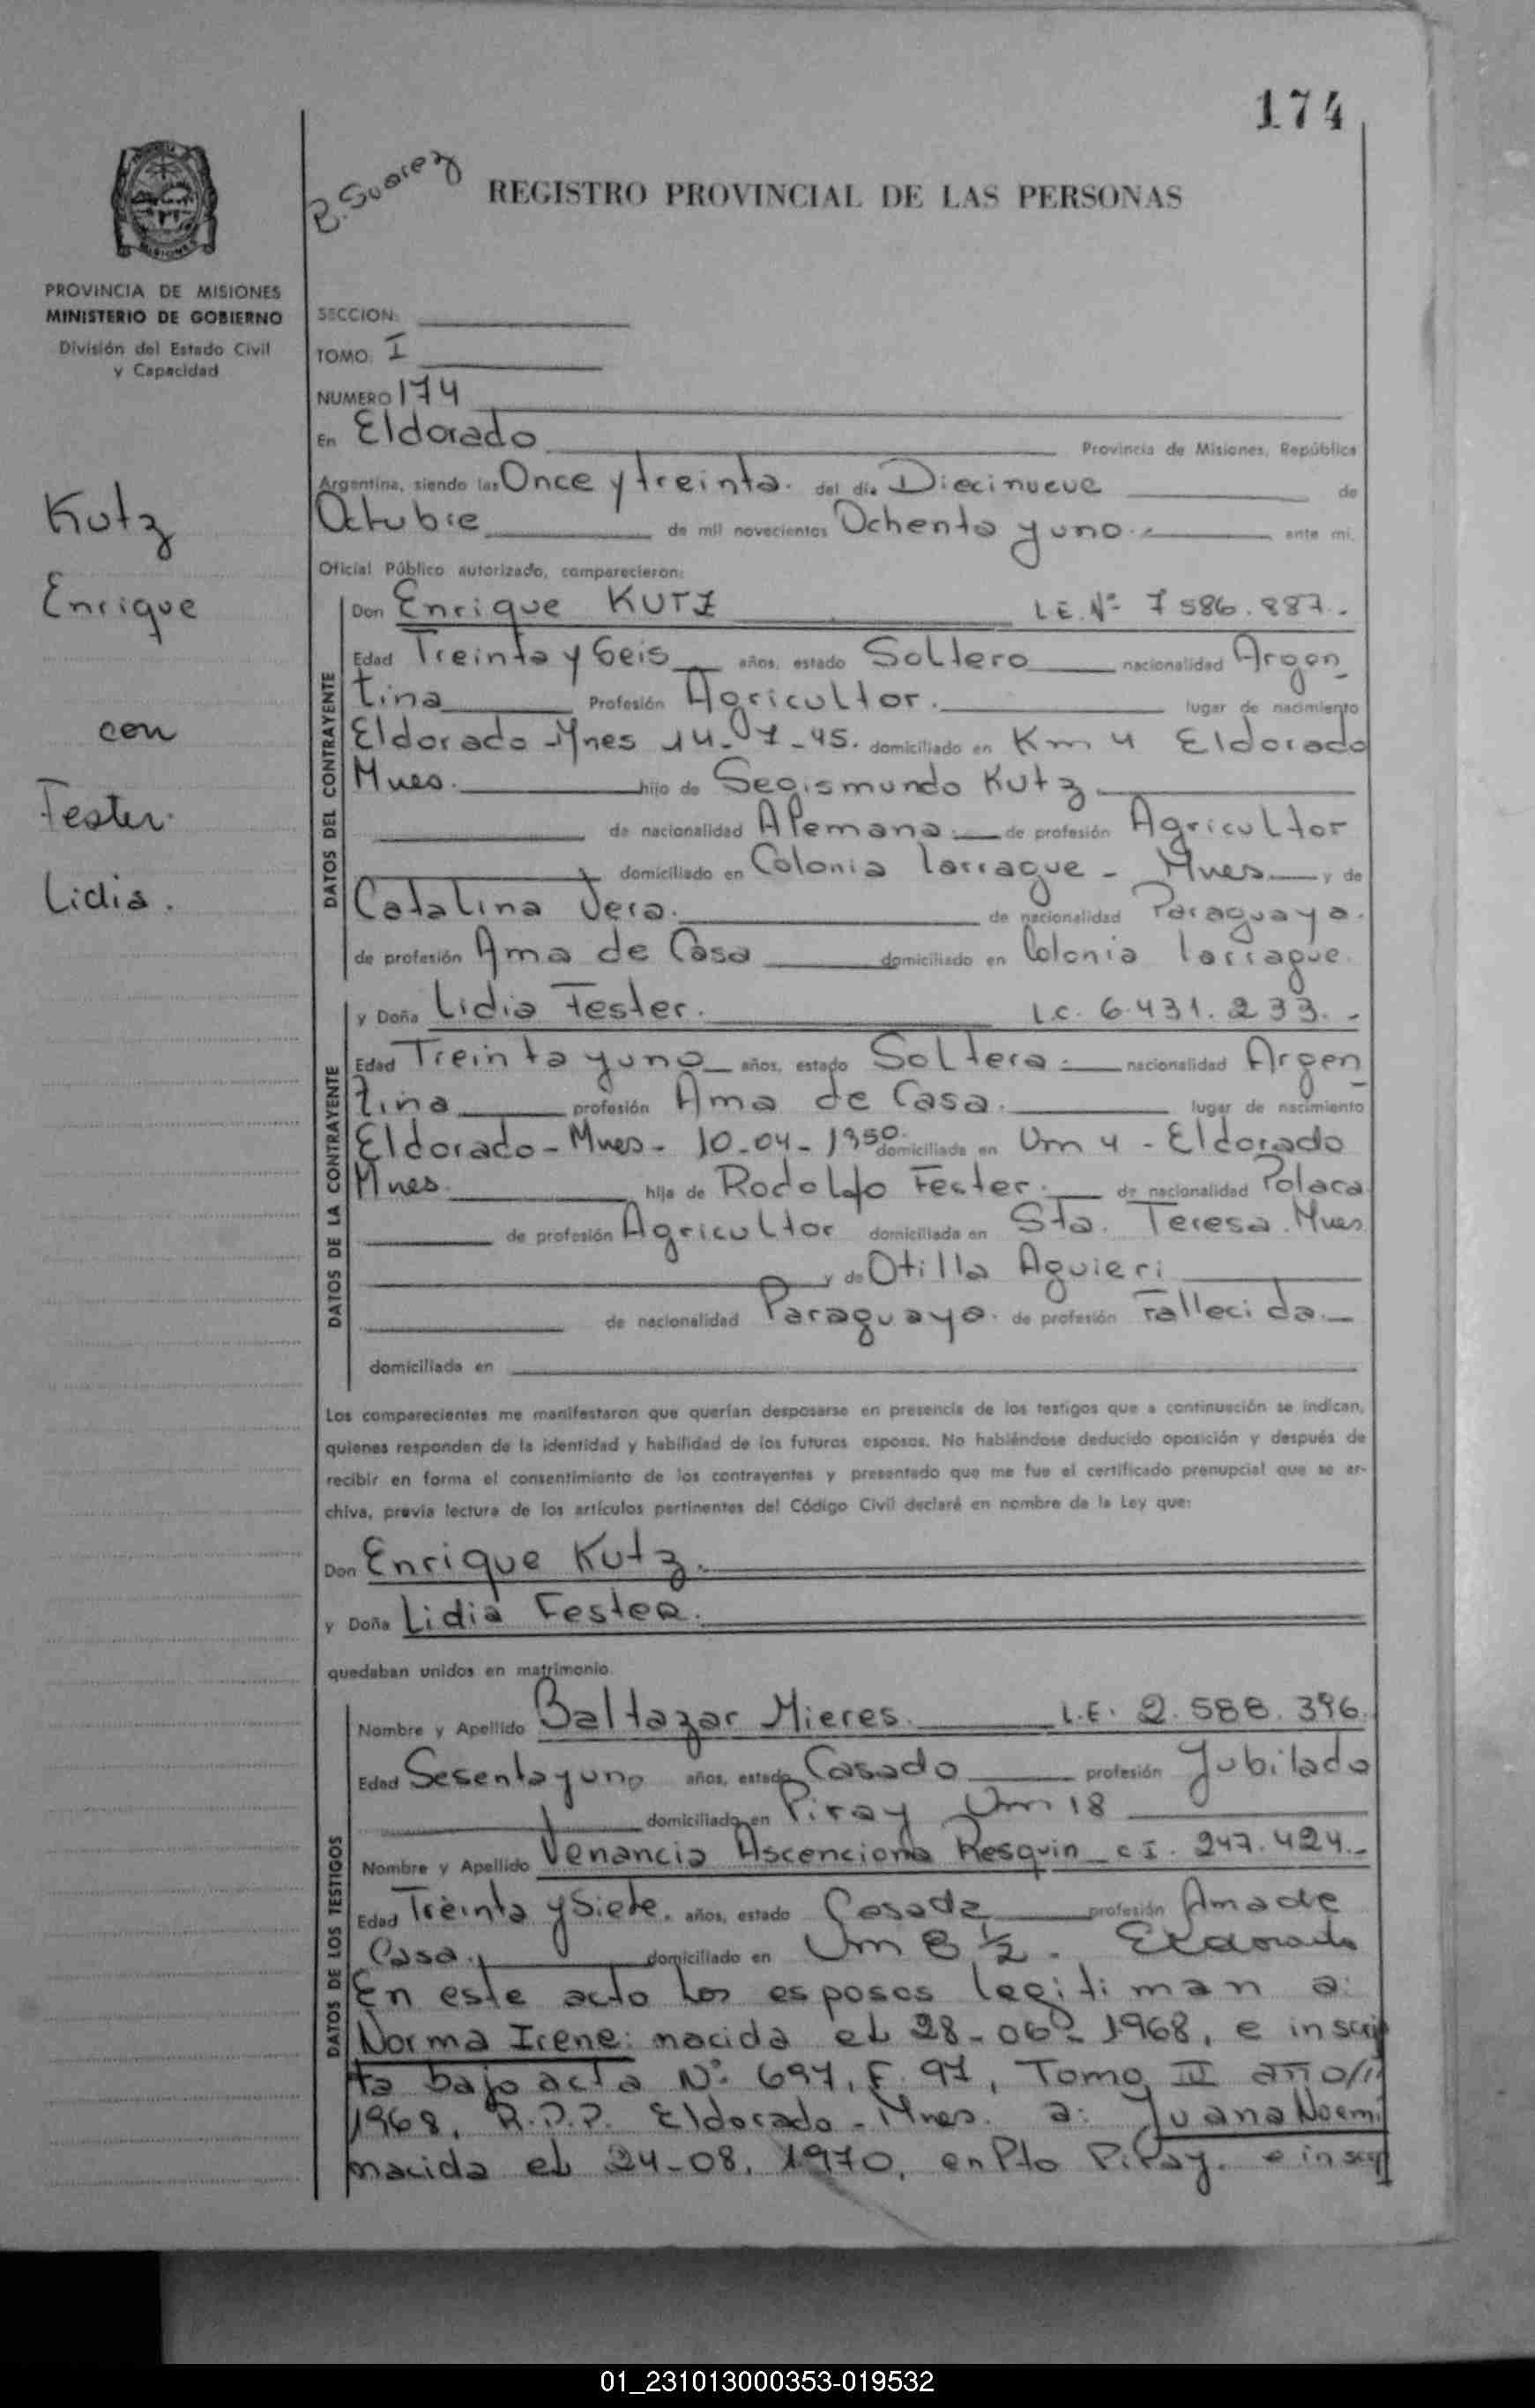 174
R. Suarez
REGISTRO PROVINCIAL DE LAS PERSONAS
MISIONES
PROVINCIA DE MISIONES
MINISTERIO DE GOBIERNO
División del Estado Civil
y Capacidad
SECCION:
TOMO: I
NUMERO 174
En Eldorado Provincia de Misiones, República
Argentina, siendo las Once y treinta. del día Diecinueve de
Octubre de mil novecientos Ochenta y uno.- ante mi,
Oficial Público autorizado, comparecieron:
Kutz
Enrique
con
Fester.
Lidia.
DATOS DEL CONTRAYENTE
Don Enrique KUTZ L.E. Nº 7586.887.-
Edad Treinta y Seis años, estado Soltero nacionalidad Argen
tina Profesión Agricultor. lugar de nacimiento
Eldorado-Mnes 14-07-45. domiciliado en Km 4 Eldorado
Mnes. hijo de Segismundo Kutz
de nacionalidad Alemana.- de profesión Agricultor
domiciliado en Colonia Larrague - Mnes y de
Catalina Vera. de nacionalidad Paraguaya.
de profesión Ama de Casa domiciliado en Colonia Larrague.
DATOS DE LA CONTRAYENTE
y Doña Lidia Fester. L.C. 6.431.233.-
Edad Treinta y uno años, estado Soltera.- nacionalidad Argen
tina profesión Ama de Casa. lugar de nacimiento
Eldorado-Mnes- 10-04-1950. domiciliada en Km 4 - Eldorado
Mnes. hija de Rodolfo Fester. de nacionalidad Polaca
de profesión Agricultor domiciliada en Sta. Teresa. Mnes
y de Otilla Aguieri
de nacionalidad Paraguaya. de profesión Fallecida.-
domiciliada en
Los comparecientes me manifestaron que querían desposarse en presencia de los testigos que a continuación se indican,
quienes responden de la identidad y habilidad de los futuros esposos. No habiéndose deducido oposición y después de
recibir en forma el consentimiento de los contrayentes y presentado que me fue el certificado prenupcial que se ar-
chiva, previa lectura de los artículos pertinentes del Código Civil declaré en nombre de la Ley que:
Don Enrique Kutz.
y Doña Lidia Fester.
quedaban unidos en matrimonio.
DATOS DE LOS TESTIGOS
Nombre y Apellido Baltazar Mieres. L.E. 2.588.396.
Edad Sesenta y uno años, estado Casado profesión Jubilado
domiciliado en Piray Km 18
Nombre y Apellido Venancia Ascenciona Resquin C.I. 247.424.-
Edad Treinta y Siete. años, estado Casada profesión Ama de
Casa. domiciliado en Km 8 ½. Eldorado
En este acto los esposos legitiman a:
Norma Irene: nacida el 28-06-1968, e inscrip
ta bajo acta Nº 697, F. 97, Tomo III año//
1968, R.P.P. Eldorado-Mnes. a: Juana Noemi
nacida el 24-08.1970, en Pto Piray. e inscrip
01_231013000353-019532